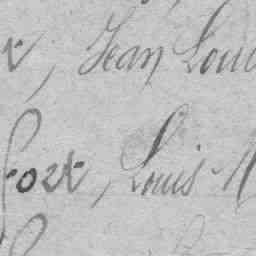 , Jean Loui
fort, Louis